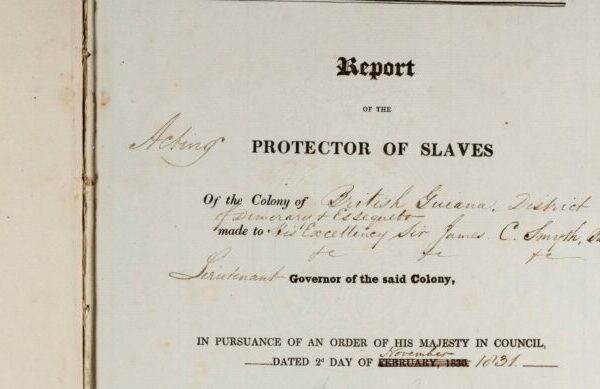 Report
OF THE
Acting PROTECTOR OF SLAVES
Of the Colony of British Guiana, District
of Demerary & Essequebo
made to His Excellency Sir James C. Smyth,
&c &c &c
Lieutenant Governor of the said Colony,
IN PURSUANCE OF AN ORDER OF HIS MAJESTY IN COUNCIL,
November
DATED 2d DAY OF FEBRUARY, 1830. 1831.